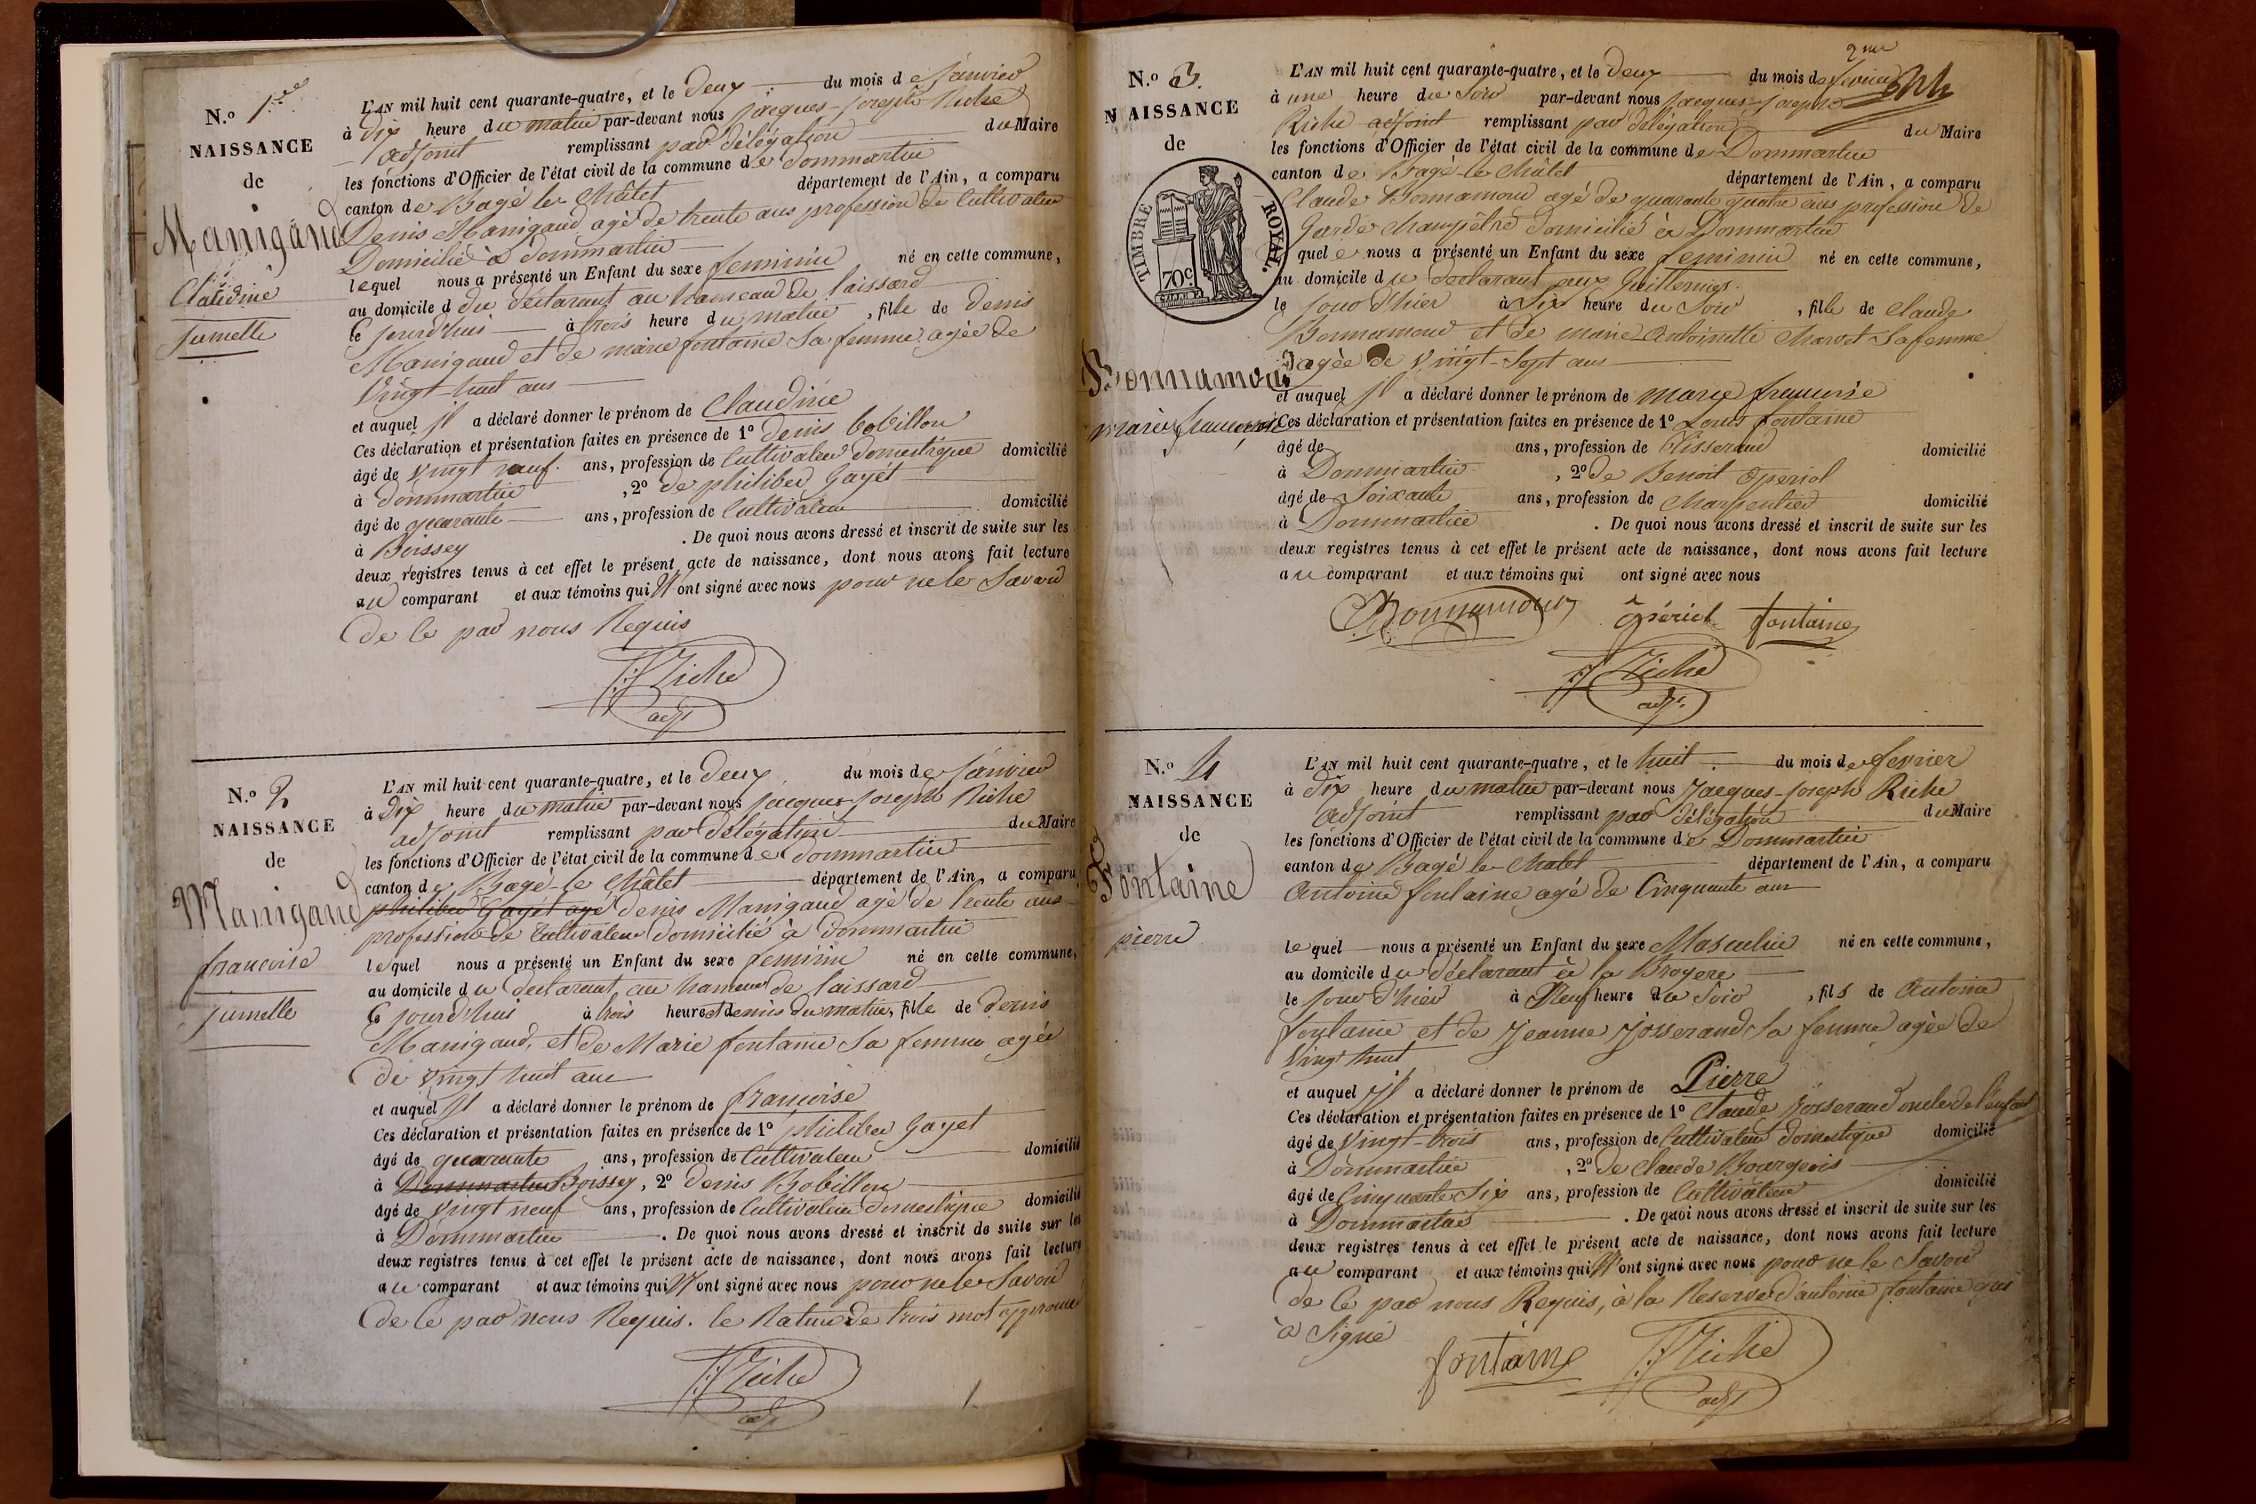 N.o 1.re
NAISSANCE
de
Manigand
Claudine
jumelle
L'AN mil huit cent quarante-quatre, et le deux du mois de janvier
à dix heure du matin par-devant nous jacques-joseph Riche
adjoint remplissant par délégation du Maire
les fonctions d'Officier de l'état civil de la commune de Dommartin
canton de Bagé le Châtel département de l'Ain, a comparu
Denis Manigand agé de trente ans profession de Cultivateur
Domicilié à dommartin
lequel nous a présenté un Enfant du sexe feminin né en cette commune,
au domicile d du déclarant au hameau de laissard
le jourd'hui à trois heure du matin, fille de denis
Manigaud et de marie fontaine sa femme agée de
Vingt-huit ans
et auquel il a déclaré donner le prénom de Claudine
Ces déclaration et présentation faites en présence de 1º denis bobillon
âgé de vingt neuf ans, profession de Cultivateur domestique domicilié
à dommartin, 2º de philiber Gayet
âgé de quarante ans, profession de Cultivateur domicilié
à Boissey. De quoi nous avons dressé et inscrit de suite sur les
deux registres tenus à cet effet le présent acte de naissance, dont nous avons fait lecture
au comparant et aux témoins qui n'ont signé avec nous pour ne le Savoir
de ce par nous Requis
JJRiche
adjt
N.o 2
NAISSANCE
de
Manigand
françoise
jumelle
L'AN mil huit cent quarante-quatre, et le deux du mois de janvier
à Dix heure du matin par-devant nous jacques joseph Riche
adjoint remplissant par délégation du Maire
les fonctions d'Officier de l'état civil de la commune de dommartin
canton de Bagé-le Châtel département de l'Ain, a comparu
philiber Gayet agé denis Manigaud agé de trente ans
profession de Cultivateur domicilié à dommartin
lequel nous a présenté un Enfant du sexe feminin né en cette commune,
au domicile du déclarant au hameau de laissard
le jourd'hui à trois heure et demis du matin, fille de denis
Manigaud, et de Marie fontaine sa femme agée
de vingt huit ans
et auquel il a déclaré donner le prénom de françoise
Ces déclaration et présentation faites en présence de 1º philiber Gayet
âgé de quarante ans, profession de Cultivateur domicilié
à Dommartin Boissey, 2º denis Bobillon
âgé de Vingt neuf ans, profession de Cultivateur domestique domicilié
à Dommartin. De quoi nous avons dressé et inscrit de suite sur les
deux registres tenus à cet effet le présent acte de naissance, dont nous avons fait lecture
au comparant et aux témoins qui n'ont signé avec nous pour ne le Savoir
de ce par nous Requis. le Rature de trois mot approuvé
JJRiche
adjt
2me
N.o 3.
NAISSANCE
de
TIMBRE ROYAL.
70c.
Bonnamour
marie françoise
L'AN mil huit cent quarante-quatre, et le deux du mois de fevrier
à une heure du Soir par-devant nous jacques-joseph
Riche adjoint remplissant par délégation du Maire
les fonctions d'Officier de l'état civil de la commune de Dommartin
canton de Bagé-le Châtel département de l'Ain, a comparu
Claude Bonnamour agé de quarante quatre ans profession de
Garde champêtre domicilié à Dommartin
quel e nous a présenté un Enfant du sexe feminin né en cette commune,
au domicile du declarant aux Guillermins.
le jour d'hier à Six heure du Soir, fille de Claude
Bonnamour et de marie Antoinette Charvet Sa femme
agée de Vingt-Sept ans
et auquel il a déclaré donner le prénom de marie françoise
Ces déclaration et présentation faites en présence de 1º Louis fontaine
âgé de ans, profession de tisserand domicilié
à Dommartin, 2º de Benoit Epériol
âgé de Soixante ans, profession de Charpentier domicilié
à Dommartin. De quoi nous avons dressé et inscrit de suite sur les
deux registres tenus à cet effet le présent acte de naissance, dont nous avons fait lecture
au comparant et aux témoins qui ont signé avec nous
Bonnamour fontaine
JJRiche
adjt.
N.o 4
NAISSANCE
de
Fontaine
pierre
L'AN mil huit cent quarante-quatre, et le huit du mois de fevrier
à dix heure du matin par-devant nous Jacques-joseph Riche
adjoint remplissant par délégation du Maire
les fonctions d'Officier de l'état civil de la commune de Dommartin
canton de Bagé le Chatel département de l'Ain, a comparu
antoine fontaine agé de Cinquante ans
lequel nous a présenté un Enfant du sexe Masculin né en cette commune,
au domicile du déclarant à la Broyere
le jour d'hier à Neuf heure du Soir, fils de Antoine
fontaine et de Jeanne Josserand Sa femme agée de
Vingt huit
et auquel il a déclaré donner le prénom de Pierre
Ces déclaration et présentation faites en présence de 1º Claude Josserand oncle de l'enfant
âgé de Vingt-trois ans, profession de Cultivateur domestique domicilié
à Dommartin, 2º de Claude Bourgeois
âgé de Cinquante Six ans, profession de Cultivateur domicilié
à Dommartin. De quoi nous avons dressé et inscrit de suite sur les
deux registres tenus à cet effet le présent acte de naissance, dont nous avons fait lecture
au comparant et aux témoins qui n'ont signé avec nous pour ne le Savoir
de ce par nous Requis, à la Reserve d'antoine fontaine qui
à Signé
fontaine JJRiche
adjt